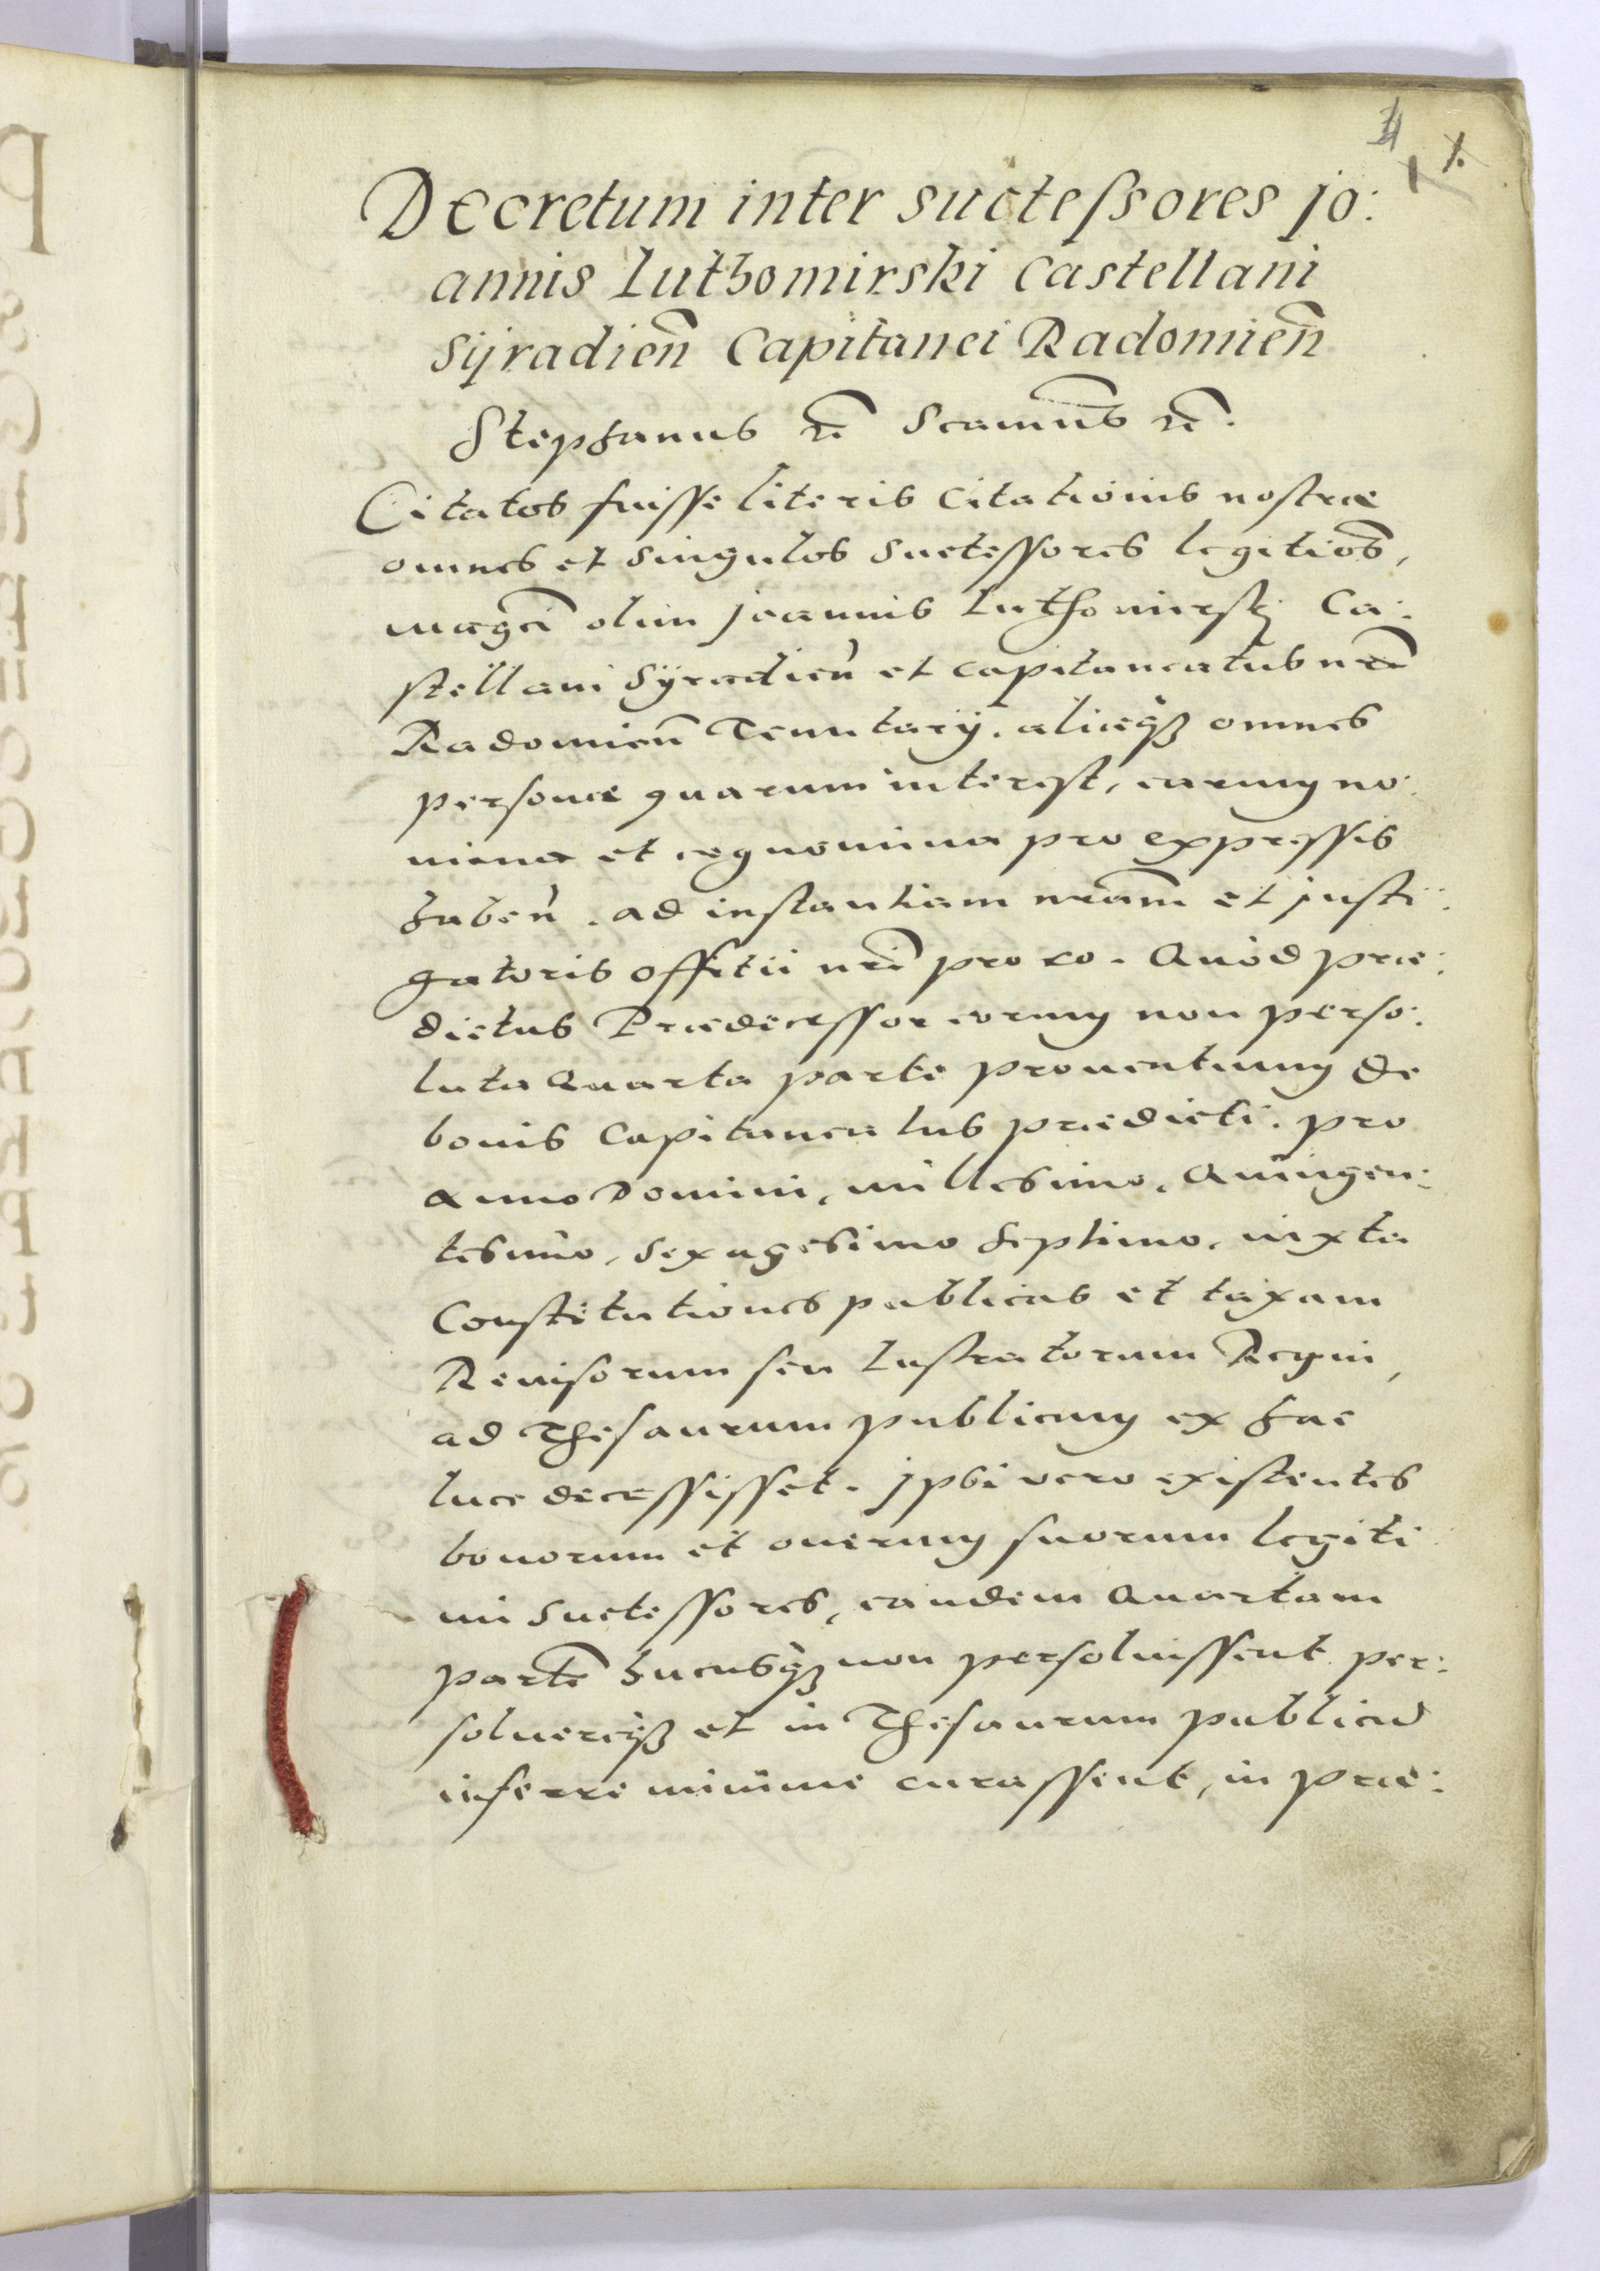 Decretum inter suctessores Jo:
annis Luthomirski Castellani
Syradien̄ Capitanei Radomien̄
Stephanus rc̄ Scamus̄ rc̄.
Citatos fuisse literis Citationis nostræ
omnes et singulos suctessores legitios̄,
magci̅ olim Joannis Luthomirskj Ca:
stellani Syradien̄ et capitaneatus nr̄i
Radomien̄ Tenutarÿ. aliasq₃ omnes
personæ quarum interest, earum no:
mina et cognomina pro expressis
haben̄. ad instantiam nr̄am et Insti:
gatoris offitii nr̄i pro eo. Quod præ:
dictus Prædecessor eorum non perso:
luta Quarta parte prouentuum de
bonis Capitaneatus prædicti. pro
Anno Domini, millesimo, Quingen:
tesimo, sexagesimo septimo, iuxta
Constitutiones publicas et taxam
Reuisorum seu Lustratorum Regni,
ad Thesaurum publicum ex hac
luce decessisset. Ipsi vero existentes
bonorum et onerum suorum legiti
mi suctessores, eandem Quartam
parte̅ hucusq₃ non persoluissent per:
soluereq₃ et in Thesaurum publicu̅
inferre minime curassent, in præ: